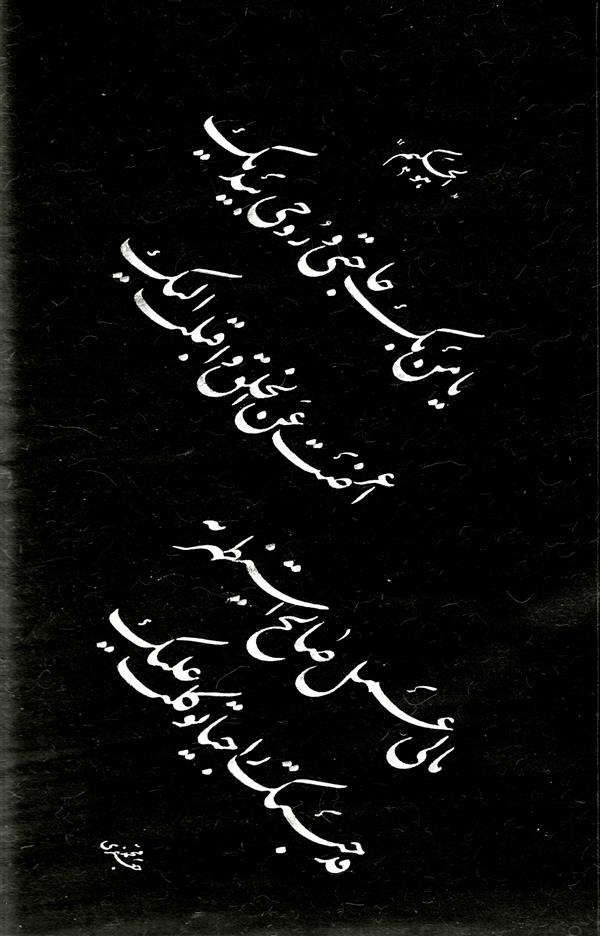 هو الحکیم
یا من بک حاجتی و روحی بیدیک
اعرضت عن الخلق و اقبلت الیک
مالی عمل صالح استظهر به
قد جئتک راجیا توکلت علیک
جعفری